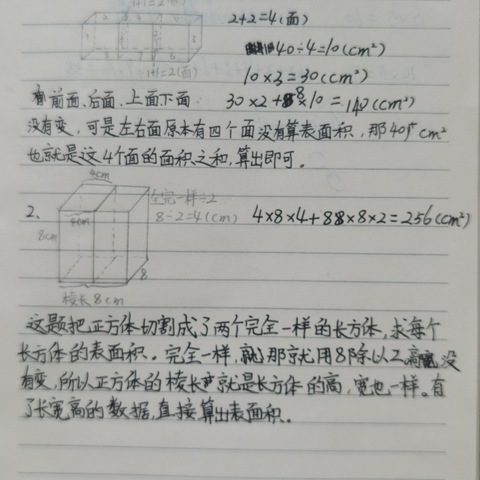 1+1=2(面)
2+2=4(面)
40÷4=10(cm²)
1+1=2(面)
10×3=30(cm²)
前面、后面、上面下面
30×2+8×10=140(cm²)
没有变，可是左右面原本有四个面没有算表面积，那40cm²
也就是这4个面的面积之和，算出即可。
4cm
2.
完一样÷2
8÷2=4(cm)
4×8×4+8×8×2=256(cm²)
4cm
8cm
8
棱长8cm
这题把正方体切割成了两个完全一样的长方体，求每个
长方体的表面积。完全一样，那就用8除以2，高没
有变，所以正方体的棱长就是长方体的高，宽也一样。有
了长宽高的数据，直接算出表面积。